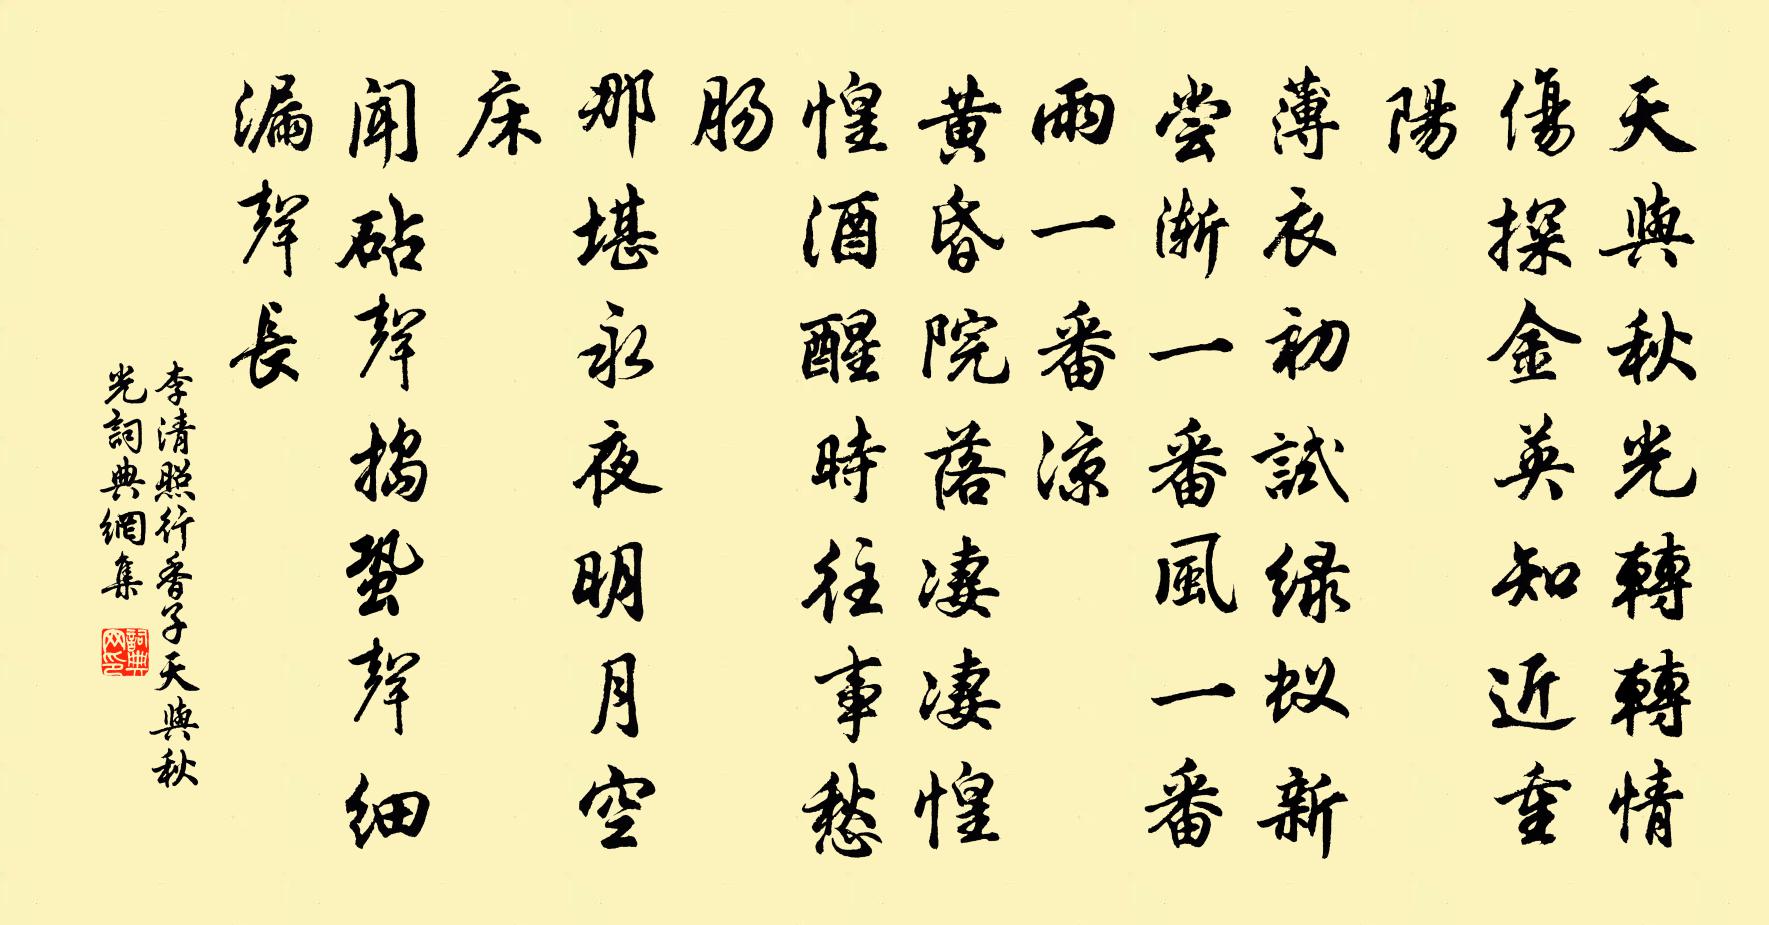 天與秋光轉轉情
傷探金英知近重
陽
薄衣初試緑蚁新
尝渐一番風一番
雨一番涼
黄昏院落凄凄惶
惶酒醒時往事愁
肠
那堪永夜明月空
床
闻砧聲捣蛩聲细
漏聲長
李清照行香子天與秋
光詞典網集
詞典
网印